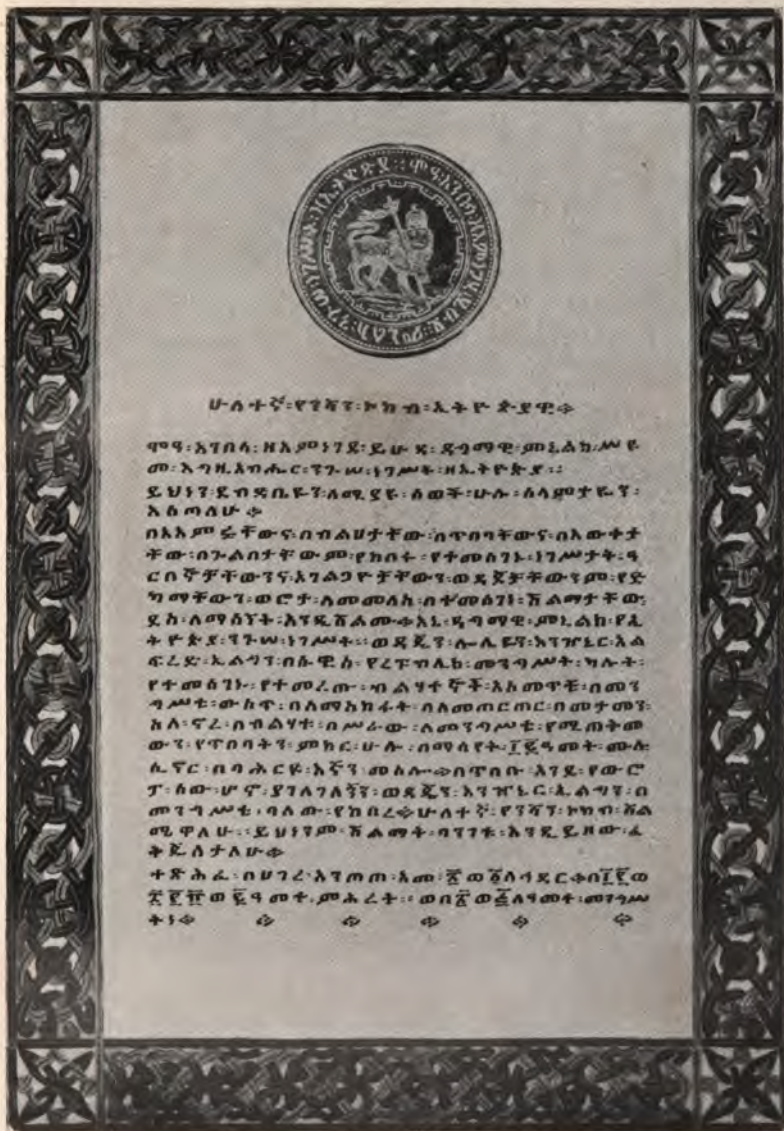 ሞዓ፡አንበሳ፡ዘእምነገደ፡ይሁዳ፡ዳግማዊ፡ምኒልክ፡ንጉሠ፡ነገሥት፡ዘኢትዮጵያ፡፡
ሁለተኛ፡የንሻን፡ኮከብ፡ኢትዮጵያዊ፨
ሞዓ፡አንበሳ፡ዘእምነገደ፡ይሁዳ፡ዳግማዊ፡ምኒልክ፡ሥዩ
መ፡እግዚአብሔር፡ንጉሠ፡ነገሥት፡ዘኢትዮጵያ፡፡
ይህንን፡ደብዳቤዬን፡ለሚያዩ፡ሰወች፡ሁሉ፡ሰላምታዬን፡
እሰጣለሁ፨
በአእምሯቸውና፡በብልሀታቸው፡በጥበባቸውና፡በእውቀታ
ቸው፡በጉልበታቸውም፡የከበሩ፡የተመሰገኑ፡ነገሥታት፡ዓ
ርበኞቻቸውንና፡አገልጋዮቻቸውን፡ወዳጆቻቸውንም፡የድ
ካማቸውን፡ወሮታ፡ለመመለስ፡በተመሰገነ፡ሽልማታቸው፡
ደስ፡ለማሰኘት፡እንዲሸልሙ፨እኔ፡ዳግማዊ፡ምኒልክ፡የኢ
ትዮጵያ፡ንጉሠ፡ነገሥት፡፡ወዳጄን፡ሙሴዩን፡እንዠኒር፡አል
ፍረድ፡ኢልግን፡በሱዊስ፡የረፑብሊክ፡መንግሥት፡ካሉት፡
የተመሰገኑ፡የተመረጡ፡ብልሃተኞች፡እስመጥቼ፡በመን
ግሥቴ፡ውስጥ፡በለማስከፋት፡ባለመጠርጠር፡በመታመን፡
አለ፡ኖረ፡በብልሃቱ፡በሥራው፡ለመንግሥቴ፡የሚጠቅመ
ውን፡የጥበባትን፡ምክር፡ሁሉ፡በማሳየት፡፲፪ዓመት፡ሙሉ
ሲኖር፡በባሕርዩ፡እኛን፡መስሎ፨በጥበቡ፡እንደ፡የውሮ
ፓ፡ሰው፡ሆኖ፡ያገለገለኝን፡ወዳጄን፡እንዠኒር፡ኢልግን፡በ
መንግሥቴ፡ባለው፡የከበረ፨ሁለተኛ፡የንሻን፡ኮከብ፡ሸል
ሜዋለሁ፡፡ይህንንም፡ሽልማት፡ባንገቱ፡እንዲይዘው፡ፈ
ቅጄለታለሁ፨
ተጽሕፈ፡በሀገረ፡እንጦጦ፡አመ፡፳ወ፩ለኅዳር፨በ፲፪ወ
፻፹ወ፪ዓመተ፡ምሕረት፡፡ወበ፳ወ፭ለዓመተ፡መንግሥ
ትነ፨